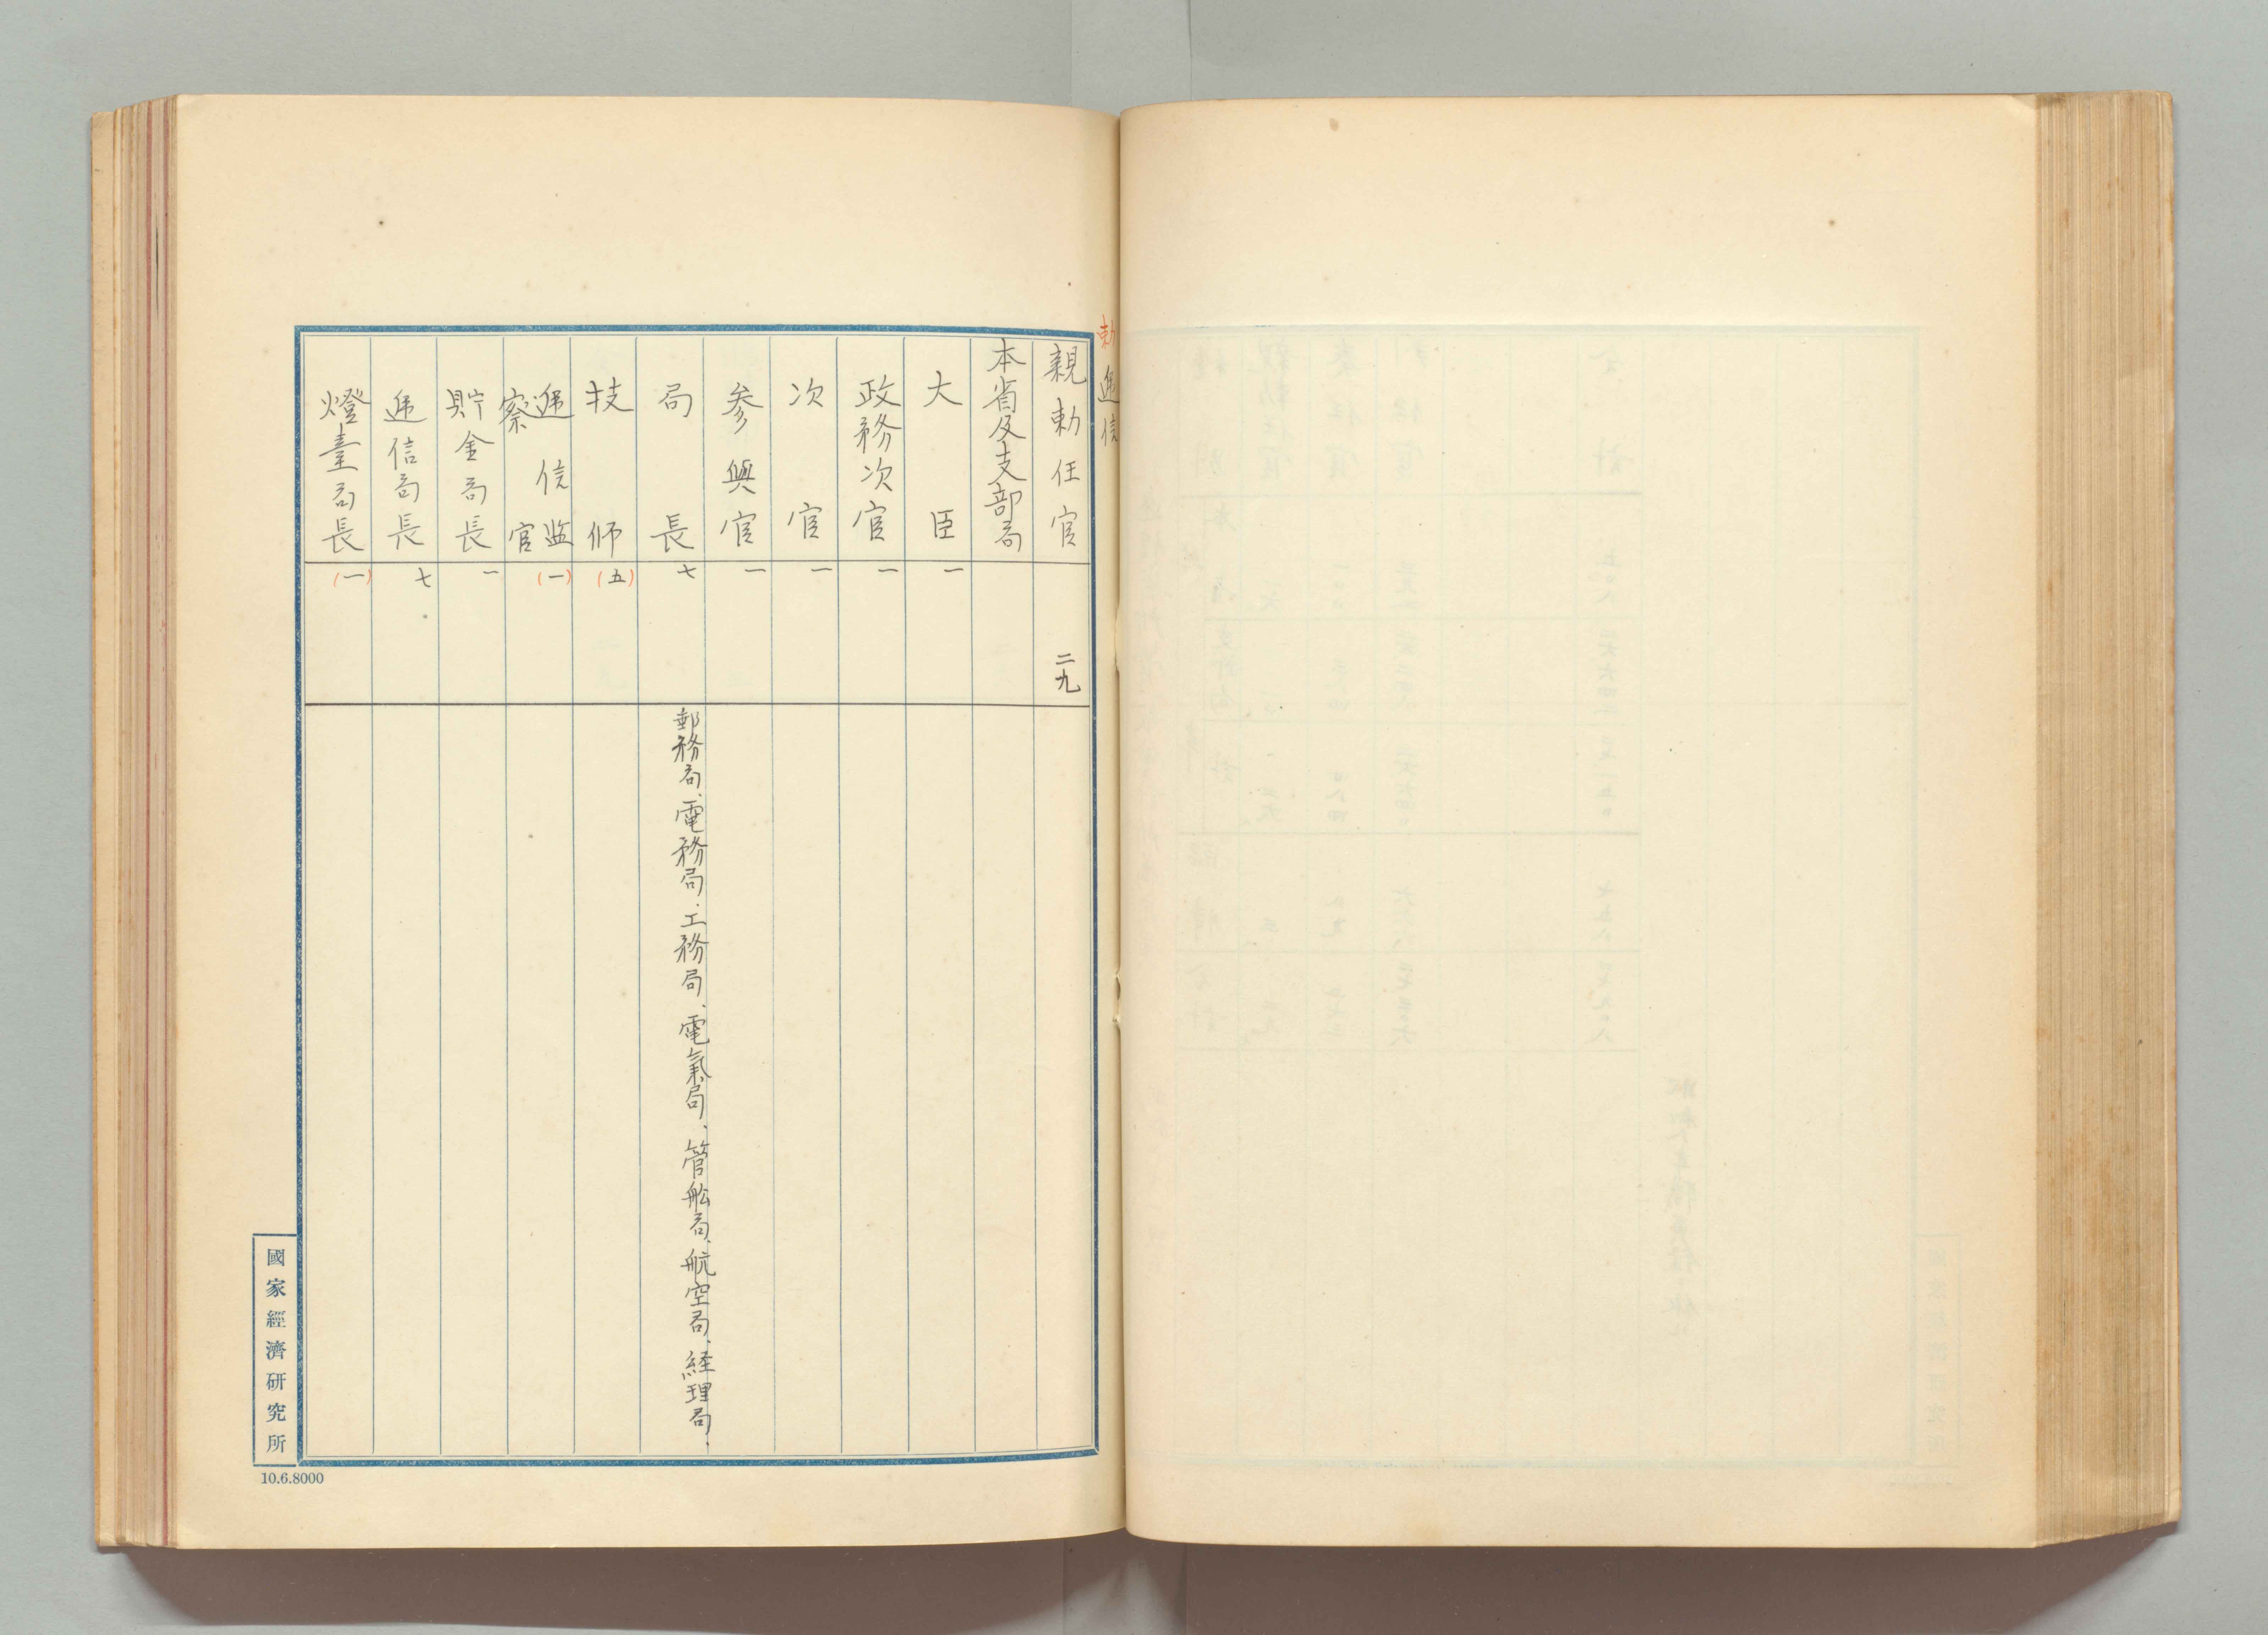 勅 逓信
親勅任官 二九
本省及支部局
大臣 一
政務次官 一
次官 一
参與官 一
局長 七 郵務局、電務局、工務局、電氣局、管舩局、航空局、経理局、
技師 (五)
逓信監察官 (一)
貯金局長 一
逓信局長 七
燈臺局長 (一)
國家經濟研究所
10.6.8000